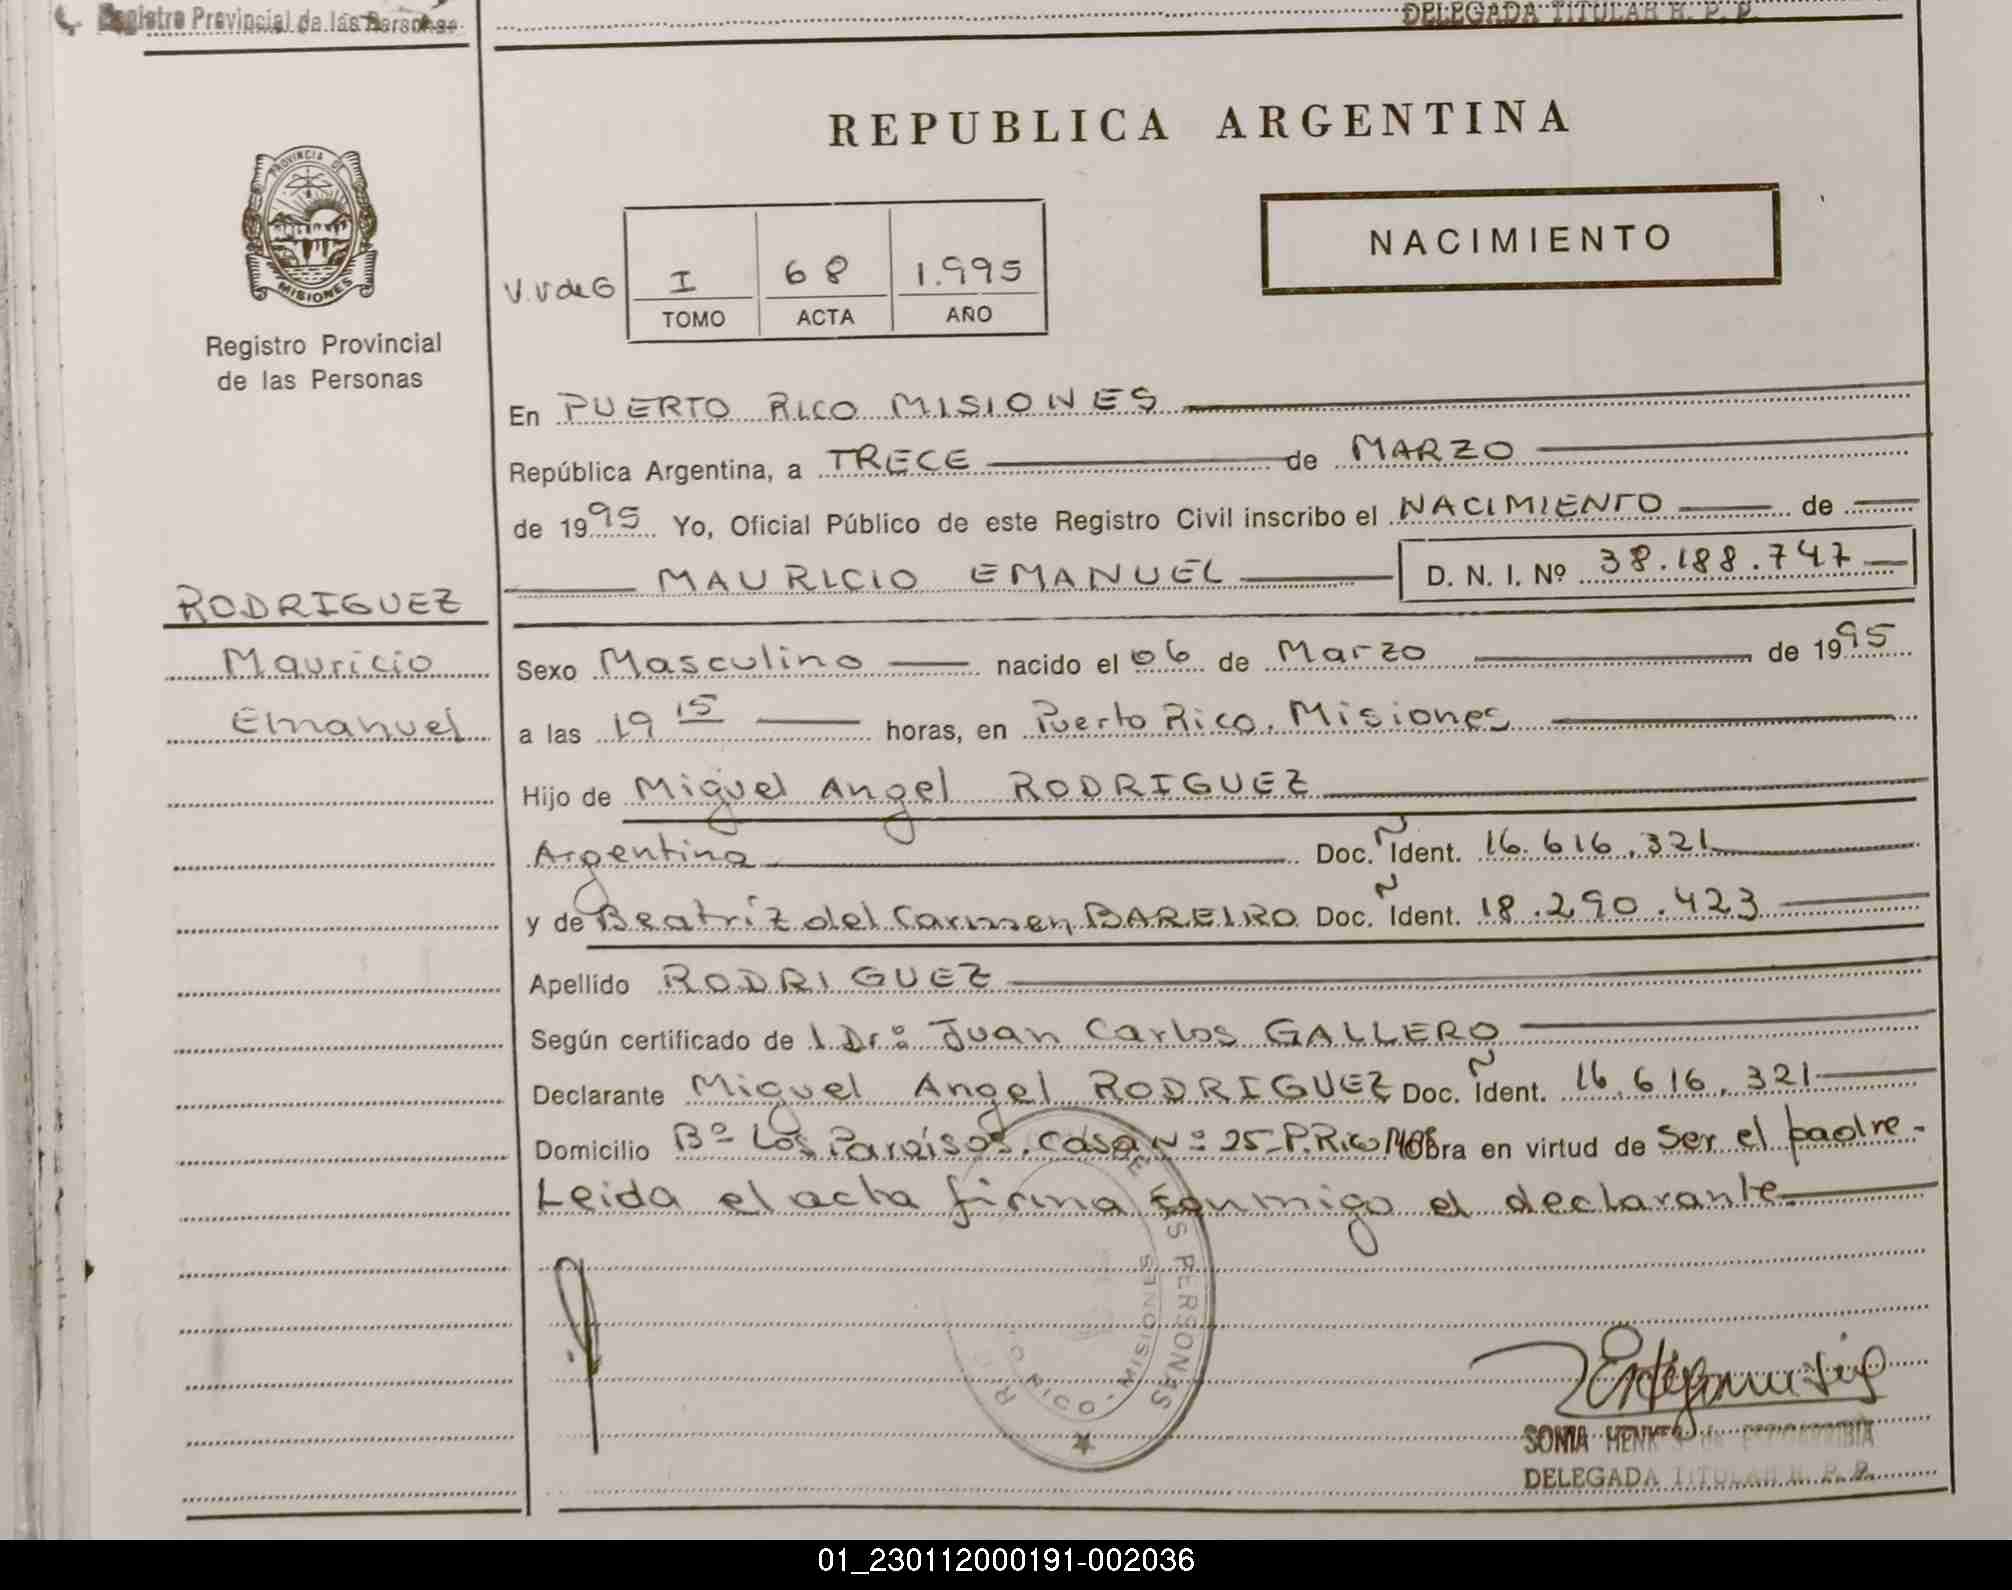 Registro Provincial de las Personas
DELEGADA TITULAR R. P. P.
REPUBLICA ARGENTINA
PROVINCIA DE
MISIONES
Registro Provincial
de las Personas
NACIMIENTO
V.V de G
I 68 1.995
TOMO ACTA AÑO
En PUERTO RICO MISIONES
República Argentina, a TRECE de MARZO
de 1995 Yo, Oficial Público de este Registro Civil inscribo el NACIMIENTO de
MAURICIO EMANUEL D. N. I. Nº 38.188.747
RODRIGUEZ
Mauricio
Emanuel
Sexo Masculino nacido el 06 de Marzo de 1995
a las 19 15 horas, en Puerto Rico, Misiones
Hijo de Miguel Angel RODRIGUEZ
Argentina Doc. Ident. 16.616.321
y de Beatríz del Carmen BAREIRO Doc. Ident. 18.290.423
Apellido RODRIGUEZ
Según certificado de l Dr: Juan Carlos GALLERO
Declarante Miguel Angel RODRIGUEZ Doc. Ident. 16.616.321
Domicilio Bº Los Paraísos, Casa Nº 25-P.Rico Obra en virtud de Ser el padre.-
Leida el acta firma conmigo el declarante.
DE LAS PERSONAS
RICO - MISIONES
SONIA HENKES de ESTIGARRIBIA
DELEGADA TITULAR R. P. P.
01_230112000191-002036